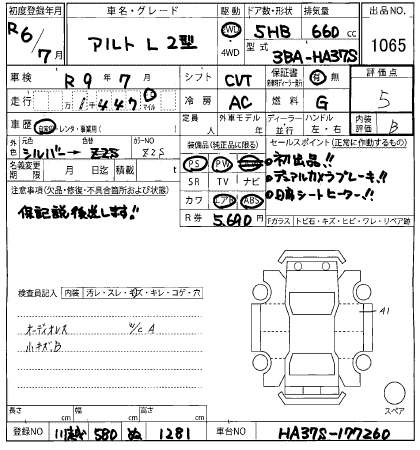 初度登録年月 車名・グレード 駆動 ドア数・形状 排気量 出品NO
R6/7月 アルト L 2型 2WD 4WD 5HB 660cc 1065
型式 3BA-HA37S
車検 R9年7月 シフト CVT 保証書 有 無 評価点 5
走行 万1千447 マイル 冷房 AC 燃料 G
車歴 自家用・レンタ・事業用( ) 定員 人 外車モデル 年 ディーラー 並行 ハンドル 左・右 内装評価 B
外色 元色 シルバー→ 色替 ZZS カラーNO ZZS
装備品(純正品に限る) セールスポイント(正常に作動するもの)
名義変更期限 月 日迄 積載 t
PS PW 初出品!!
注意事項(欠品・修復・不具合箇所および状態) SR TV ナビ デュアルカメラブレーキ!!
保記説後送します!! カワ エアB ABS シートヒーター!!
R券 5,690円 Fガラス トビ石・キズ・ヒビ・ワレ・リペア跡
検査員記入 内装 汚レ・スレ・キズ・キレ・コゲ・穴
オーディオレス W/C A
小キズB
A1
スペア
長さ cm 幅 cm 高さ cm
登録NO 川越 580 ぬ 1281 車台NO HA37S-177260